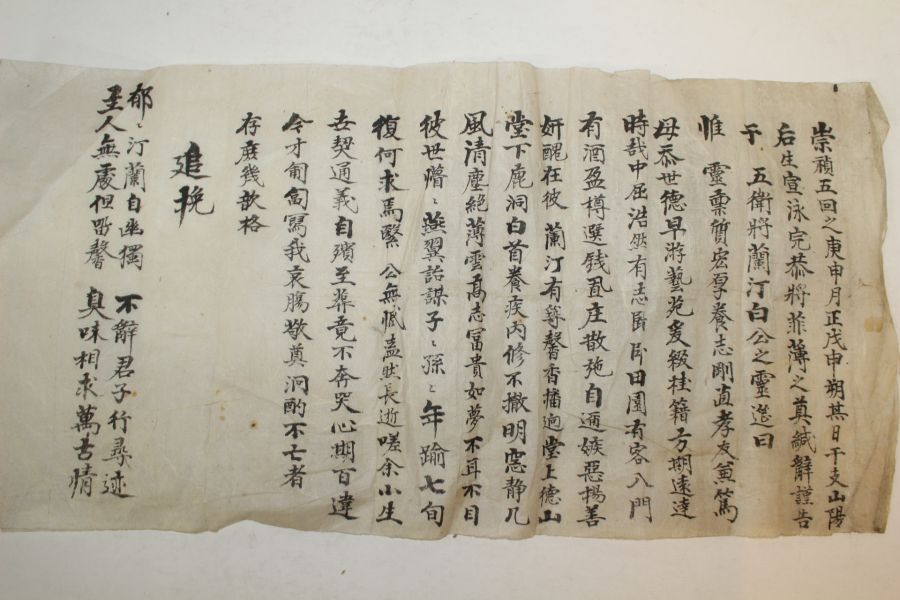 崇禎五回之庚申月正戊申朔某日干支山陽
后生宣泳完恭將菲薄之奠緘辭謹告
于 五衛將蘭汀白公之靈筵曰
惟 靈稟質宏厚養志剛直孝友兼篤
母忝世德早游藝苑爰綴桂籍方期遠達
時哉中屈浩然有志歸臥田園有客入門
有酒盈樽選錢亂庄散施自適嫉惡揚善
妍醜在彼 蘭汀有蘂馨香播遠堂上德山
堂下鹿洞白首養疾內修不撤明窓静几
風清塵絶薄雲高志冨貴如夢不耳不目
彼世瞻瞻燕翼詒謀子々孫々年踰七旬
復何求焉緊 公無憾盍然長逝嗟余小生
去契通義自殯至葬竟不奔哭心期百違
今才匍匐寫我哀膓敬奠泂酌不亡者
存庶幾歆格
追挽
郁々汀蘭自幽獨 不辭君子行尋迹
人無處但留馨 臭味相求萬古情